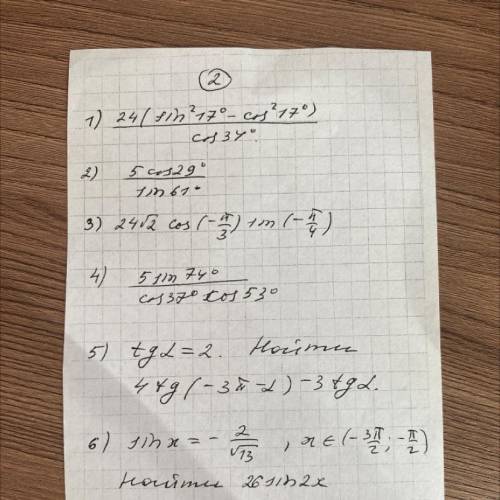 2
1) 24(sin²17° - cos²17°) / cos34°
2) 5 cos29° / sin61°
3) 24√2 cos(-π/3) sin(-π/4)
4) 5 sin74° / cos37° cos53°
5) tgα = 2. Найти
4 tg(-3π - α) - 3 tgα.
6) sin x = - 2/√13, x ∈ (-3π/2; -π/2)
Найти 26 sin2x